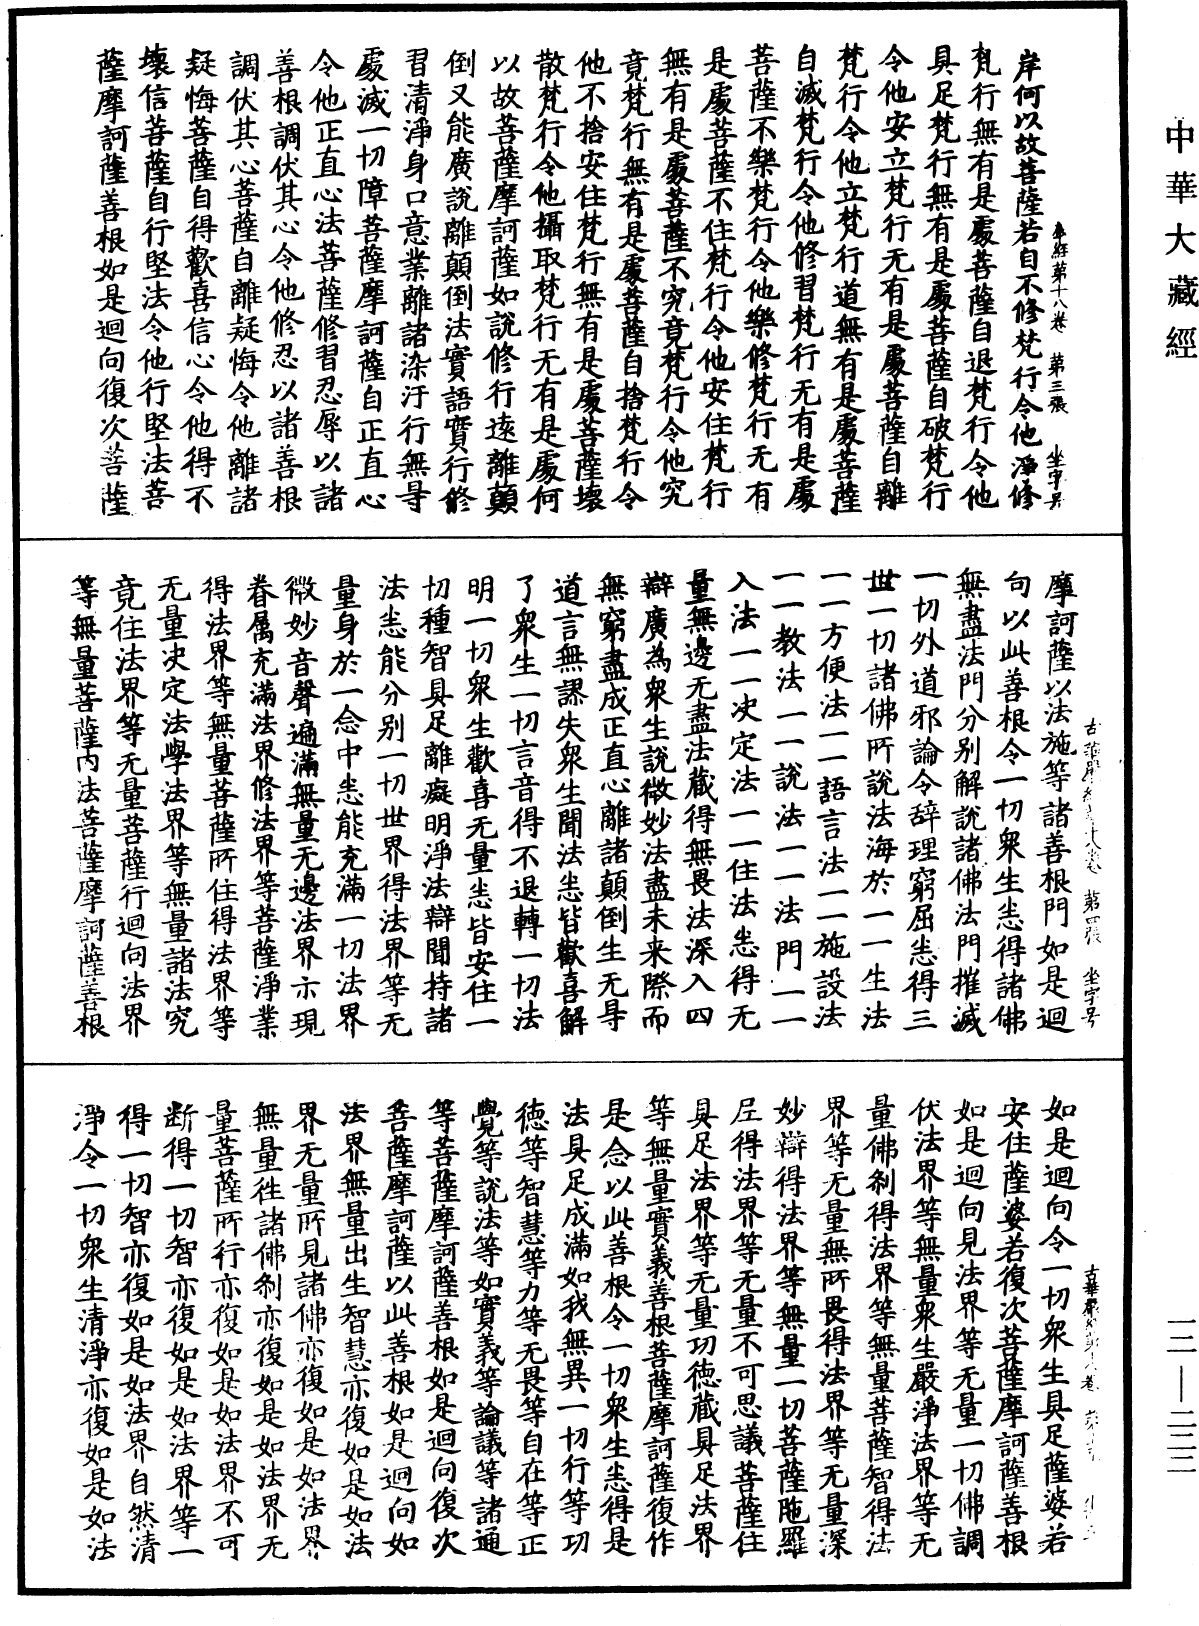 中華大藏經
岸何以故菩薩若自不修梵行令他淨修
梵行無有是處菩薩自退梵行令他
具足梵行無有是處菩薩自破梵行
令他安立梵行无有是處菩薩自離
梵行令他立梵行道無有是處菩薩
自滅梵行令他修習梵行无有是處
菩薩不樂梵行令他樂修梵行无有
是處菩薩不住梵行令他安住梵行
無有是處菩薩不究竟梵行令他究
竟梵行無有是處菩薩自捨梵行令
他不捨安住梵行無有是處菩薩壞
散梵行令他攝取梵行无有是處何
以故菩薩摩訶薩如說修行遠離顛
倒又能廣說離顛倒法實語實行修
習清淨身口意業離諸染汙行無㝵
處滅一切障菩薩摩訶薩自正直心
令他正直心法菩薩修習忍辱以諸
善根調伏其心令他修忍以諸善根
調伏其心菩薩自離疑悔令他離諸
疑悔菩薩自得歡喜信心令他得不
壞信菩薩自行堅法令他行堅法菩
薩摩訶薩善根如是迴向復次菩薩
第十八卷 第三張 坐字号
摩訶薩以法施等諸善根門如是迴
句以此善根令一切衆生悉得諸佛
無盡法門分别解說諸佛法門摧滅
一切外道邪論令辞理窮屈悉得三
世一切諸佛所說法海於一一生法
一一方便法一一語言法一一施設法
一一教法一一說法一一法門一一
入法一一决定法一一住法悉得无
量無邊无盡法藏得無畏法深入四
辯廣為衆生說微妙法盡未来際而
無窮盡成正直心離諸顛倒生无㝵
道言無謬失衆生聞法悉皆歡喜解
了衆生一切言音得不退轉一切法
明一切衆生歡喜无量悉皆安住一
切種智具足離癡明淨法辯聞持諸
法悉能分别一切世界得法界等无
量身於一念中悉能充滿一切法界
微妙音聲遍滿無量无邊法界示現
眷属充滿法界修法界等菩薩淨業
得法界等無量菩薩所住得法界等
无量决定法學法界等無量諸法究
竟住法界等无量菩薩行迴向法界
等無量菩薩内法菩薩摩訶薩善根
第四張 坐字号
如是迴向令一切衆生具足薩婆若
安住薩婆若復次菩薩摩訶薩善根
如是迴向見法界等无量一切佛調
伏法界等無量衆生嚴淨法界等无
量佛刹得法界等無量菩薩智得法
界等无量無所畏得法界等无量深
妙辯得法界等無量一切菩薩陁羅
尼得法界等无量不可思議菩薩住
具足法界等无量功德藏具足法界
等無量實義善根菩薩摩訶薩復作
是念以此善根令一切衆生悉得是
法具足成滿如我無異一切行等功
德等智慧等力等无畏等自在等正
覺等說法等如實義等論議等諸通
等菩薩摩訶薩善根如是迴向復次
菩薩摩訶薩以此善根如是迴向如
法界無量出生智慧亦復如是如法
界无量所見諸佛亦復如是如法界
無量往諸佛刹亦復如是如法界无
量菩薩所行亦復如是如法界不可
断得一切智亦復如是如法界等一
得一切智亦復如是如法界自然清
淨令一切衆生清淨亦復如是如法
一二—二三三